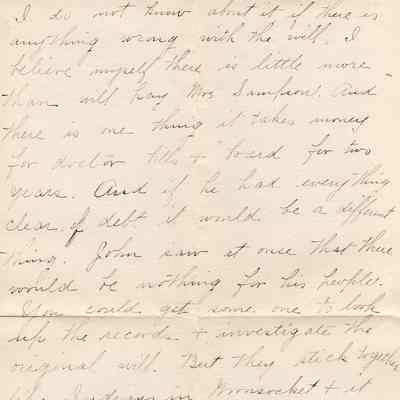 I do not know about it if there is
anything wrong with the will. I
believe myself there is little more
than will pay Mrs Sampson. And
there is one thing it takes money
for doctor bills + board for two
years. And if he had everything
clear of debt it would be a different
thing. John saw at once that there
would be nothing for his people.
You could get some one to look
up the records + investigate the
original will. But they stick together
like in Woonsocket + it